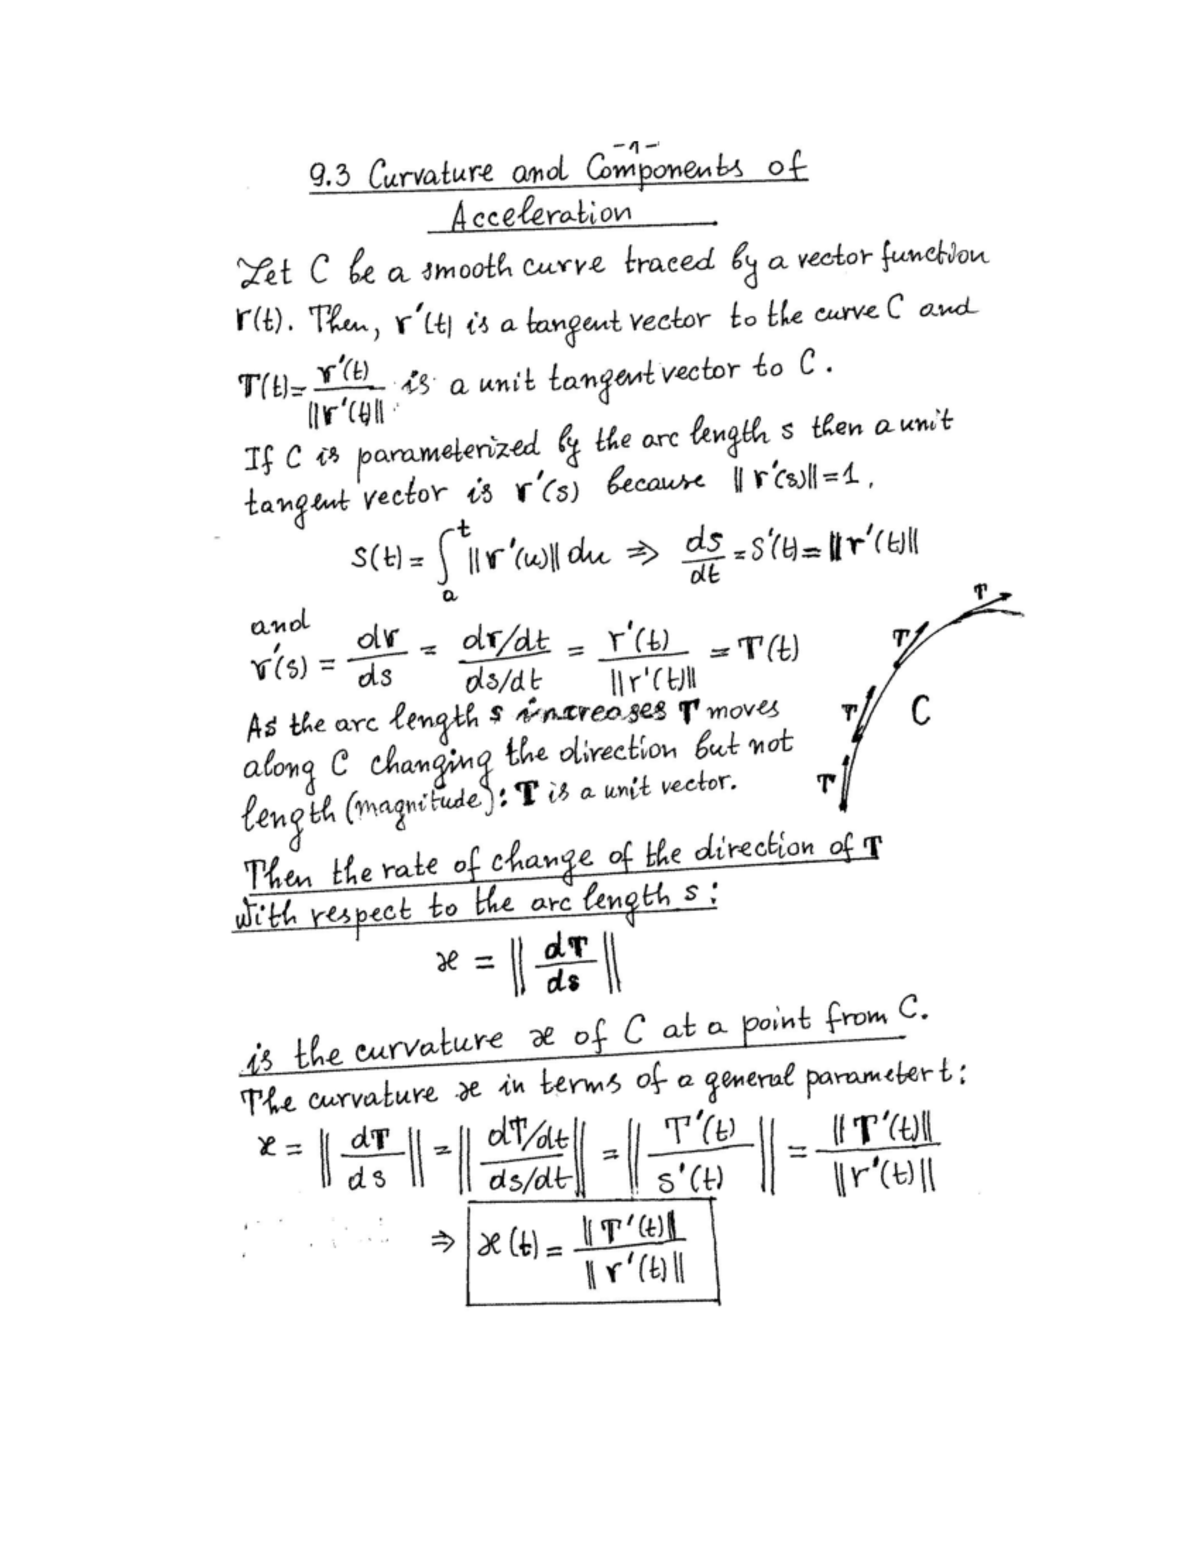 -1-
9.3 Curvature and Components of
Acceleration
Let C be a smooth curve traced by a vector function
r(t). Then, r'(t) is a tangent vector to the curve C and
T(t)= r'(t)/||r'(t)|| is a unit tangent vector to C.
If C is parameterized by the arc length s then a unit
tangent vector is r'(s) because ||r'(s)||=1.
S(t) = ∫_a^t ||r'(u)|| du ⇒ ds/dt = S'(t) = ||r'(t)||
and
r'(s) = dr/ds = (dr/dt)/(ds/dt) = r'(t)/||r'(t)|| = T(t)
As the arc length s increases T moves
along C changing the direction but not
length (magnitude): T is a unit vector.
T
T
T
T
C
Then the rate of change of the direction of T
with respect to the arc length s:
ϰ = || dT/ds ||
is the curvature ϰ of C at a point from C.
The curvature ϰ in terms of a general parameter t:
ϰ = || dT/ds || = || (dT/dt)/(ds/dt) || = || T'(t)/s'(t) || = ||T'(t)||/||r'(t)||
⇒ ϰ(t) = ||T'(t)||/||r'(t)||